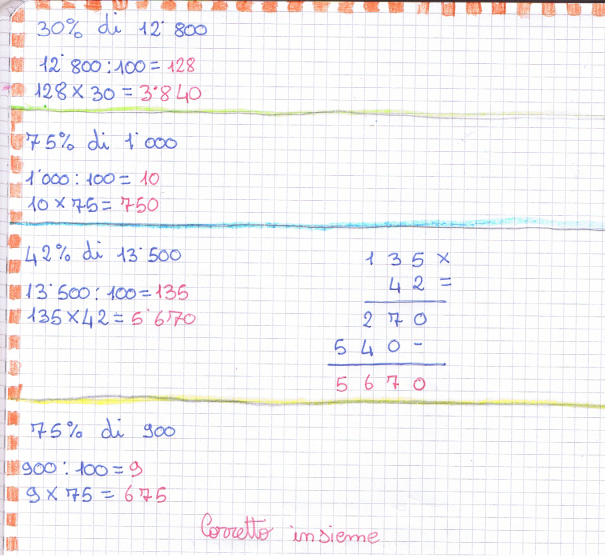 30% di 12˙800
12˙800:100=128
128×30=3˙840
75% di 1˙000
1˙000:100=10
10×75=750
42% di 13˙500
13˙500:100=135
135×42=5˙670
135×
42=
270
540-
5670
75% di 900
900:100=9
9×75=675
Corretto insieme